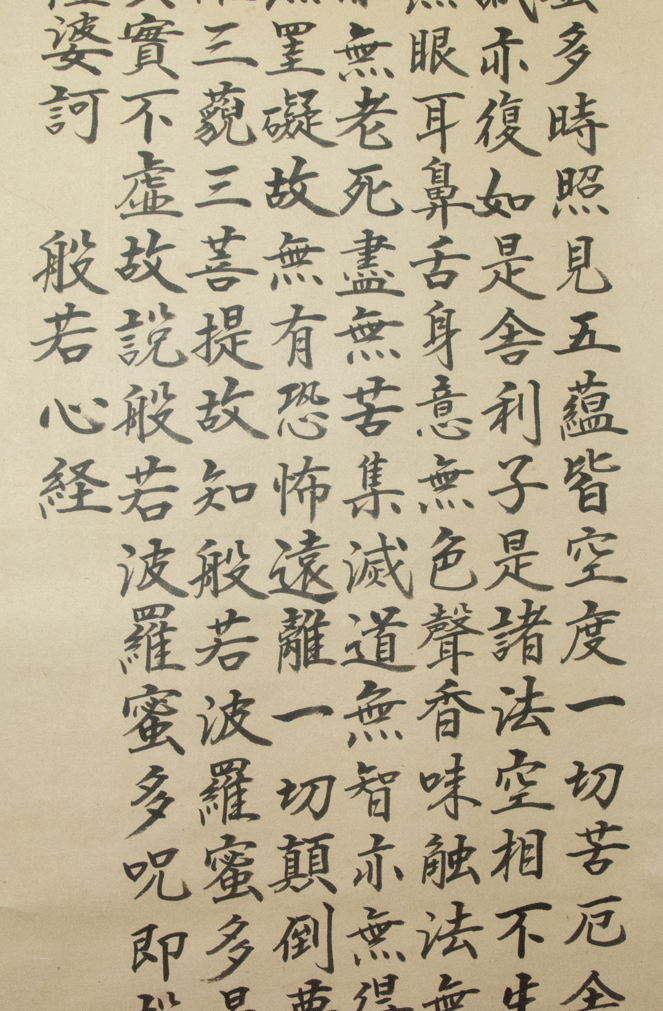 多時照見五蘊皆空度一切苦厄舎
亦復如是舎利子是諸法空相不生
眼耳鼻舌身意無色聲香味触法無
無老死盡無苦集滅道無智亦無得
罣礙故無有恐怖遠離一切顛倒夢
三藐三菩提故知般若波羅蜜多是
實不虚故説般若波羅蜜多呪即
婆訶 般若心経